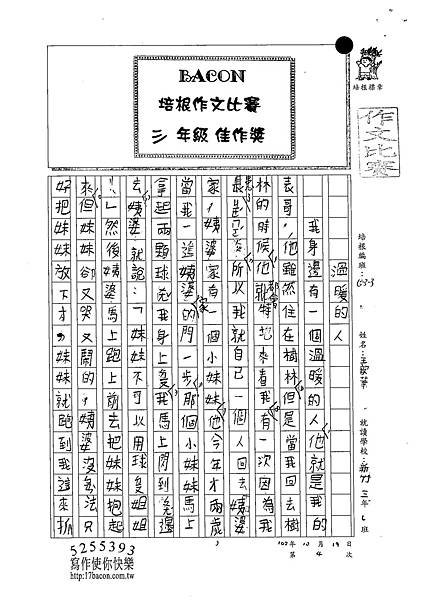 BACON
培根作文比賽
三年級 佳作獎
培根標章
作文比賽
培根編班：
姓名：
就讀學校：新竹 三年 班
溫暖的人
我身邊有一個溫暖的人他就是我的
表哥，他雖然住在樹林但是當我回去樹
林的時候他都會特地來看我有一次因為我
表哥 所以我就自己一個人回去姨婆
家，姨婆家有一個小妹妹他今年才兩歲
當我一進姨婆家的門一步那個小妹妹馬上
拿起兩顆球 我身上 我馬上閃到後邊
去姨婆就說：「妹妹不可以用球 姐姐
！」然後姨婆馬上跑上前去把妹妹抱起
來但妹妹卻又哭又鬧的，姨婆沒辦法只
好把妹妹放下才，妹妹就跑到我這來抓
102年10月19日
第4次
5255393
寫作使你快樂
http://17bacon.com.tw